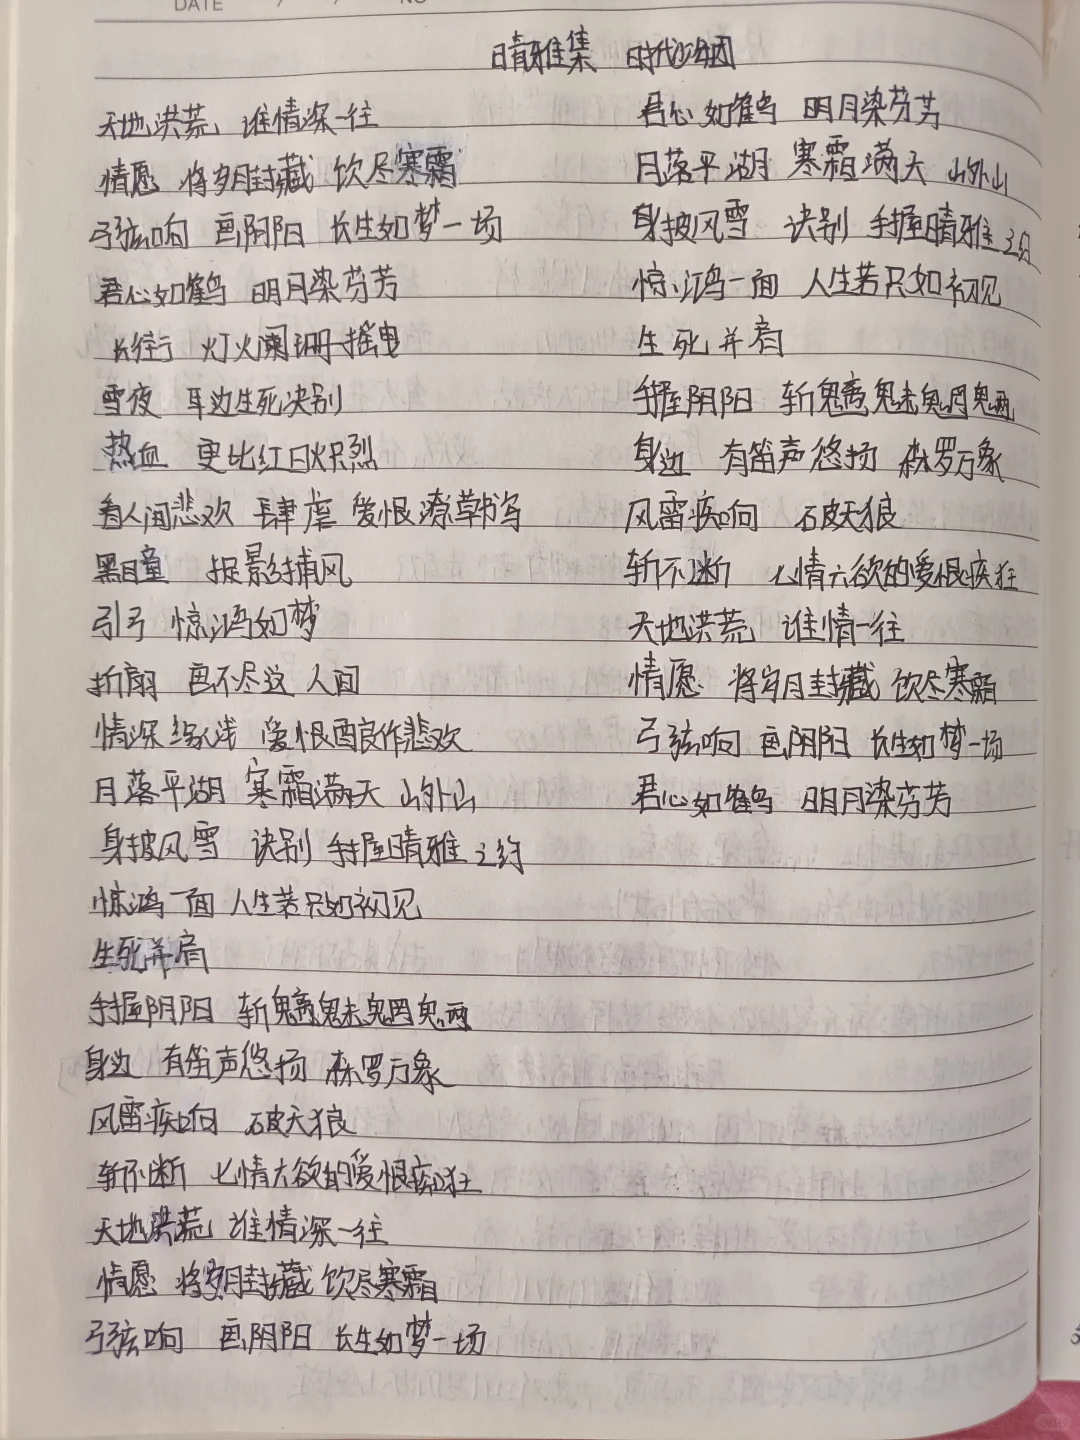 DATE
NO
晴雅集 时代少年团
天地洪荒 谁情深一往
情愿 将岁月封藏 饮尽寒霜
弓弦响 画阴阳 长生如梦一场
君心如鹤 明月染芬芳
长街 灯火阑珊摇曳
雪夜 耳边生死决别
热血 更比红日炽烈
看人间悲欢 肆虐 爱恨潦草书写
黑瞳 捉影捕风
引弓 惊鸿如梦
折扇 画不尽这 人间
情深缘浅 爱恨酿作悲欢
月落平湖 寒霜满天 山外山
身披风雪 诀别 手握晴雅之约
惊鸿一面 人生若只如初见
生死并肩
手握阴阳 斩魑魅魍魉
身边 有笛声悠扬 森罗万象
风雷疾响 破天狼
斩不断 七情六欲的爱恨痴狂
天地洪荒 谁情深一往
情愿 将岁月封藏 饮尽寒霜
弓弦响 画阴阳 长生如梦一场
君心如鹤 明月染芬芳
月落平湖 寒霜满天 山外山
身披风雪 诀别 手握晴雅之约
惊鸿一面 人生若只如初见
生死并肩
手握阴阳 斩魑魅魍魉
身边 有笛声悠扬 森罗万象
风雷疾响 破天狼
斩不断 七情六欲的爱恨疾狂
天地洪荒 谁情一往
情愿 将岁月封藏 饮尽寒霜
弓弦响 画阴阳 长生如梦一场
君心如鹤 明月染芬芳